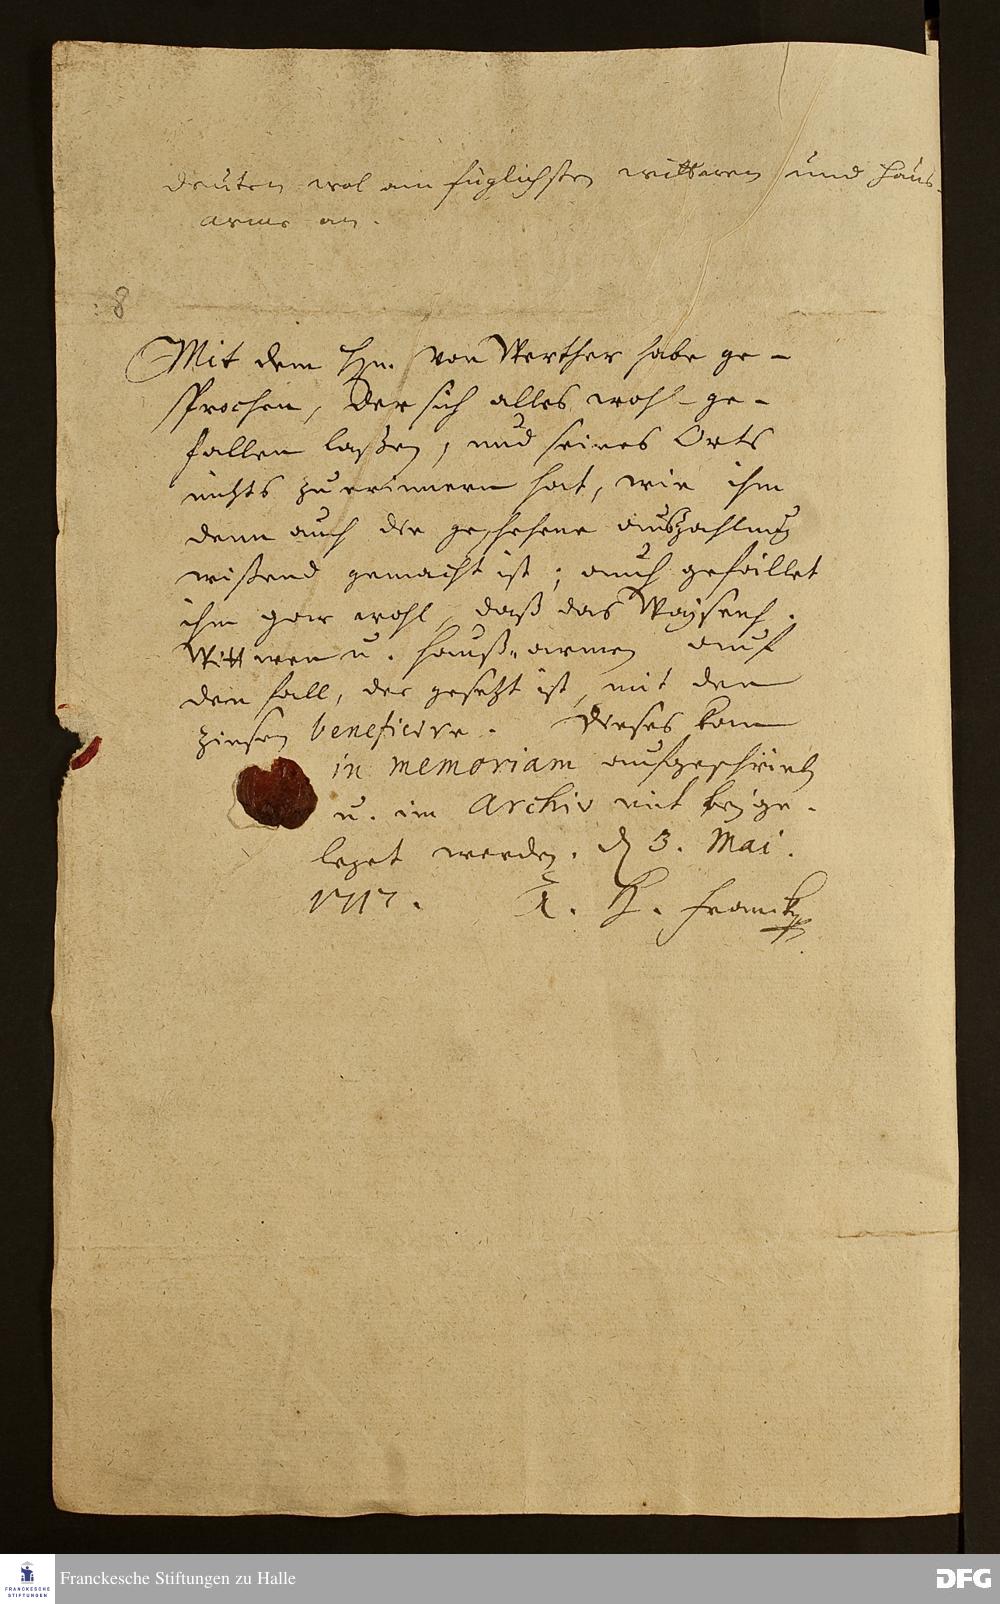 deuten wol am füglichsten wittwen und haus-
arme an.
:8
Mit dem Hn. von Werther habe ge-
sprochen, der sich alles wohl-ge-
fallen laßen, und seines Orts
nichts zu erinnern hat, wie ihm
denn auch die geschehene auszahlung
wißend gemacht ist; auch gefället
ihm gar wohl, daß das Waysenh.
Wittwen u. hauß-armen auf
den fall, der gesetzt ist, mit den
Zinsen beneficire. Dieses kan
in memoriam aufgeschrieben
u. im Archiv mit beyge-
leget werden. d 3. Mai.
1717. A. H. Francke
Franckesche Stiftungen zu Halle
FRANCKESCHE
STIFTUNGEN
DFG